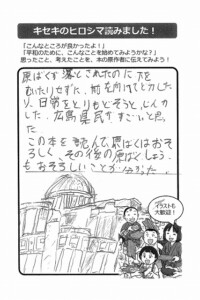 キセキのヒロシマ読みました！
「こんなところが良かったよ！」
「平和のために、こんなことを始めてみようかな？」
思ったこと、考えたことを、本の原作者に伝えてみよう！
原ばくを落とされたのに下を
むいたりせずに、前を向いてど力した
り、日常をとりもどそうとし
た、広島県民がすごいと思っ
た
この本を読んで原ばくはおそ
ろしく その後の原ばくしょう
もおそろしいことが分かった。
イラストも
大歓迎！